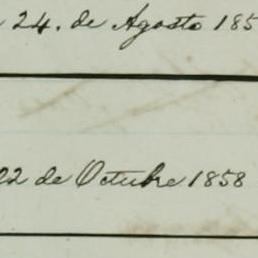 24. de Agosto 185
22 de Octubre 1858